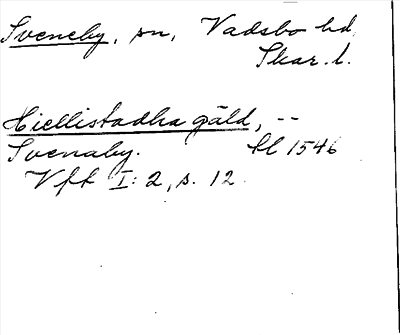 Sveneby, sn, Vadsbo hd,
Skar. l.
Hiellistadha gäld, --
Svenaby. Kl 1546
Vfk I: 2, s. 12.